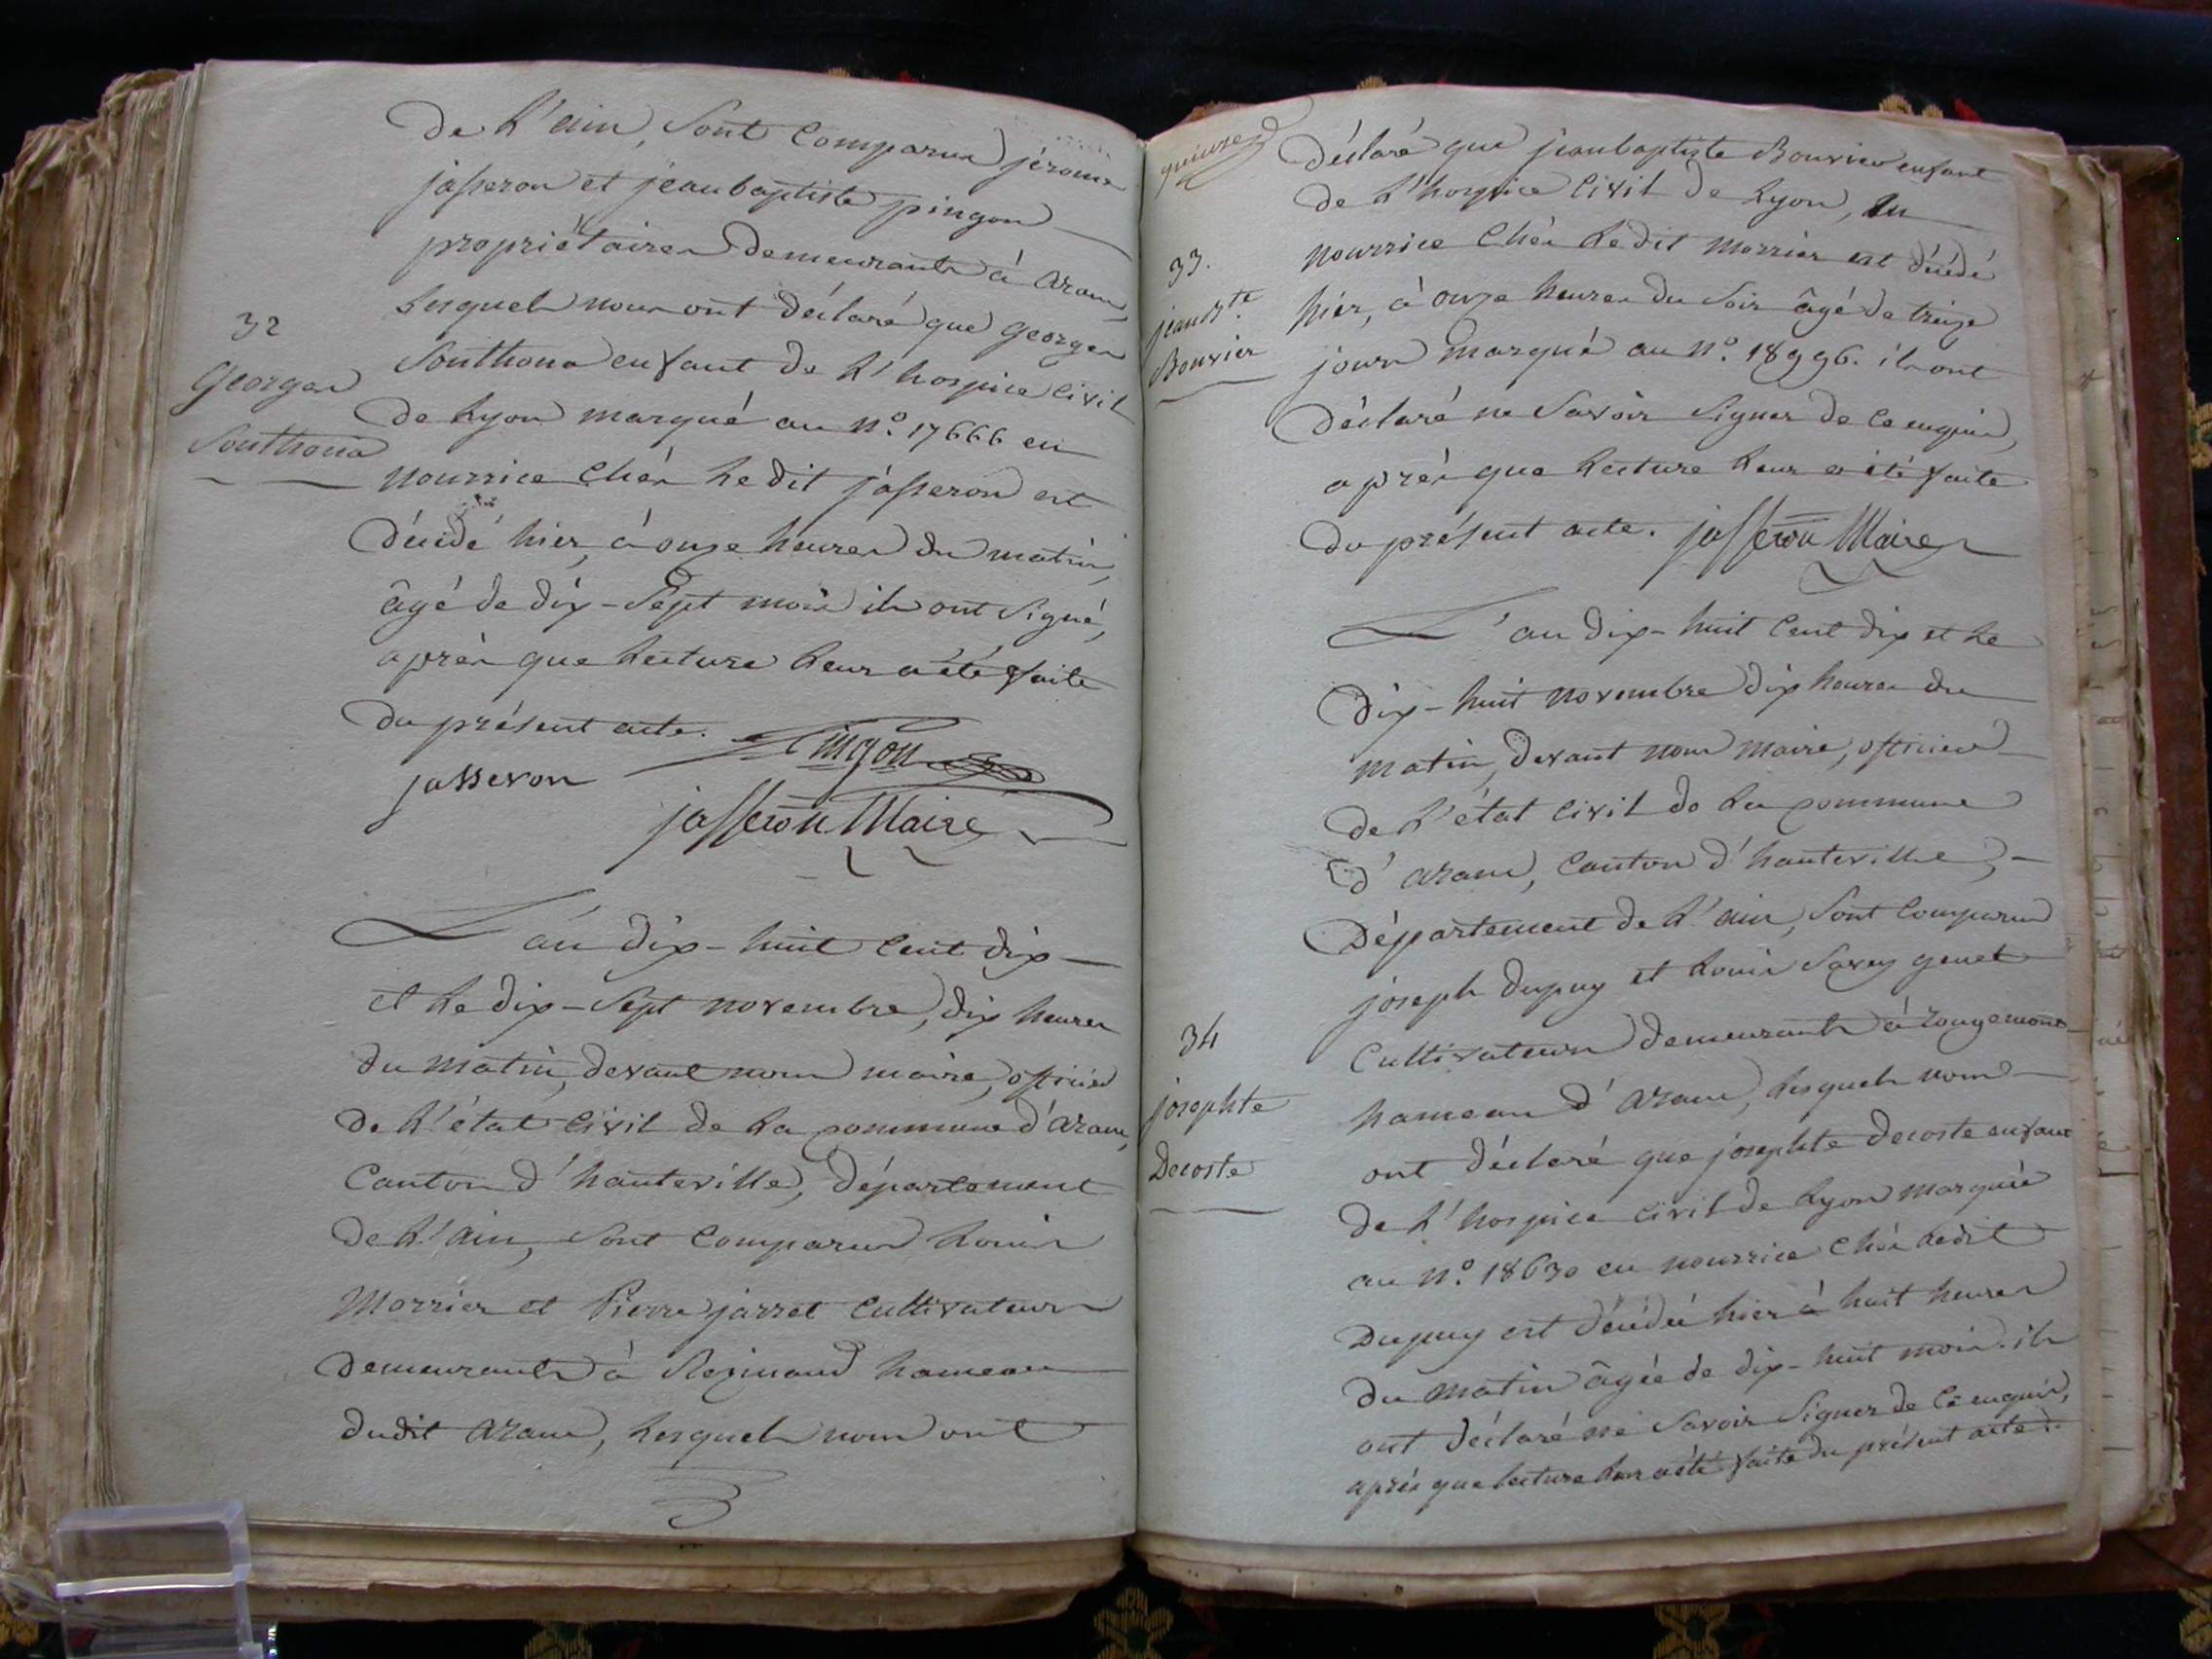 de l'ain, sont comparus jérome
jasseron et jean baptiste pingon
propriétaires demeurants à aranc,
lesquels nous ont déclaré que georges
32
Georges
Southona
Southona enfant de l'hospice civil
de Lyon marqué au n.º 17666 en
nourrice chés ledit jasseron est
décédé hier, à onze heures du matin,
âgé de dix-sept mois ils ont signé,
après que lecture leur a été faite
du présent acte. Pingon
jasseron
jasseron Maire
L'an dix-huit cent dix
et le dix-sept novembre, dix heures
du matin, devant nous maire, officier
de l'état civil de la commune d'aranc,
Canton d'hauteville, département
de l'ain, sont comparus Louis
Morrier et Pierre jarret cultivateurs
demeurants à Resinand hameau
dudit aranc, lesquels nous ont
quinze
déclaré que jean baptiste Bouvier enfant
de l'hospice civil de Lyon, en
33.
jean B.te
Bouvier
nourrice chés ledit Morrier est décédé
hier, à onze heures du soir âgé de treize
jours marqué au n.º 18996. ils ont
déclaré ne savoir signer de ce enquis,
après que lecture leur a été faite
du présent acte. jasseron Maire
L'an dix-huit cent dix et le
dix-huit novembre dix heures du
matin, devant nous maire, officier
de l'état civil de la commune
d'aranc, canton d'hauteville,
Département de l'ain, sont comparus
joseph dupuy et Louis Savey genet
34
josephte
Decoste
cultivateurs demeurants à rougemont
hameau d'aranc, lesquels nous
ont déclaré que josephte decoste enfant
de l'hospice civil de Lyon marquée
au n.º 18630 en nourrice chés ledit
Dupuy est décédée hier à huit heures
du matin âgée de dix-huit mois. ils
ont déclaré ne savoir signer de ce enquis,
après que lecture leur a été faite du présent acte.